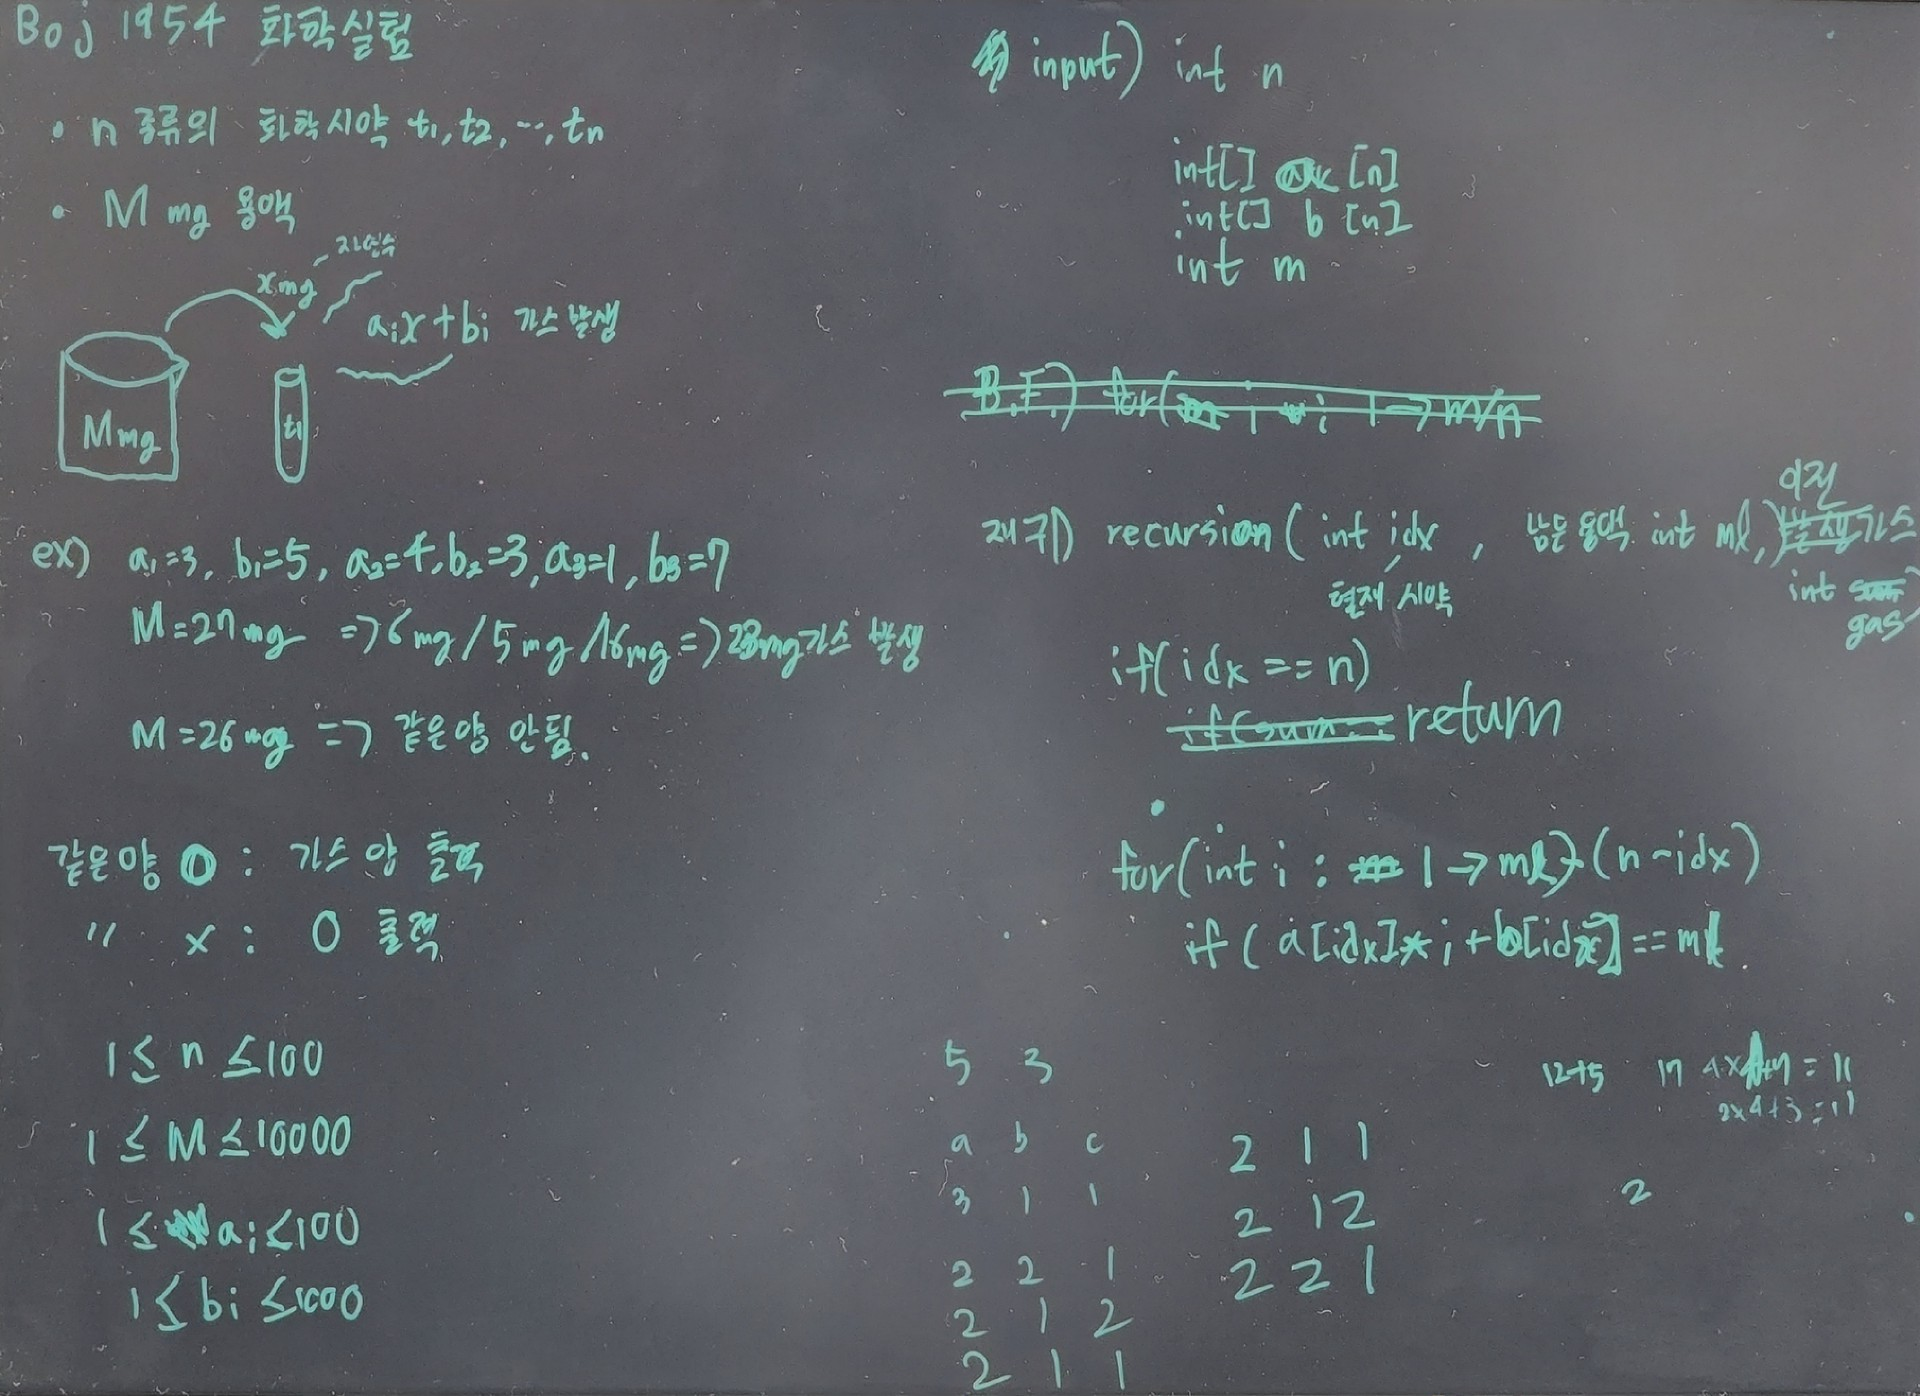 Boj 1954 화학실험
• n 종류의 화학시약 t1, t2, ..., tn
• M mg 용액
자연수
x mg
aix + bi 가스 발생
M mg
t1
ex) a1=3, b1=5, a2=4, b2=3, a3=1, b3=7
M=27mg => 6mg / 5mg / 16mg => 23mg 가스 발생
M=26mg => 같은 양 안됨.
같은양 O : 가스 양 출력
" x : 0 출력
1 ≤ n ≤ 100
1 ≤ M ≤ 10000
1 ≤ ai ≤ 100
1 ≤ bi ≤ 1000
input) int n
int[] a [n]
int[] b [n]
int m
B.F.) for( i 1 -> m/n
이전
재귀) recursion ( int idx , 남은 용액 int ml, 발생 가스
현재 시약
int sum
gas)
if( idx == n)
if(sum == return
for(int i : 1 -> ml)-(n-idx)
if ( a[idx]*i + b[idx] == ml
5 3
a b c
3 1 1
2 2 1
2 1 2
2 1 1
2 1 1
2 1 2
2 2 1
12+5 17 = 11
2x4+3 = 11
2